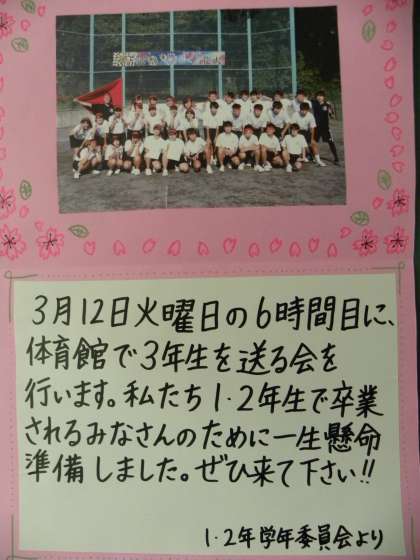 3月12日火曜日の6時間目に、
体育館で3年生を送る会を
行います。私たち1・2年生で卒業
されるみなさんのために一生懸命
準備しました。ぜひ来て下さい!!
1・2年学年委員会より